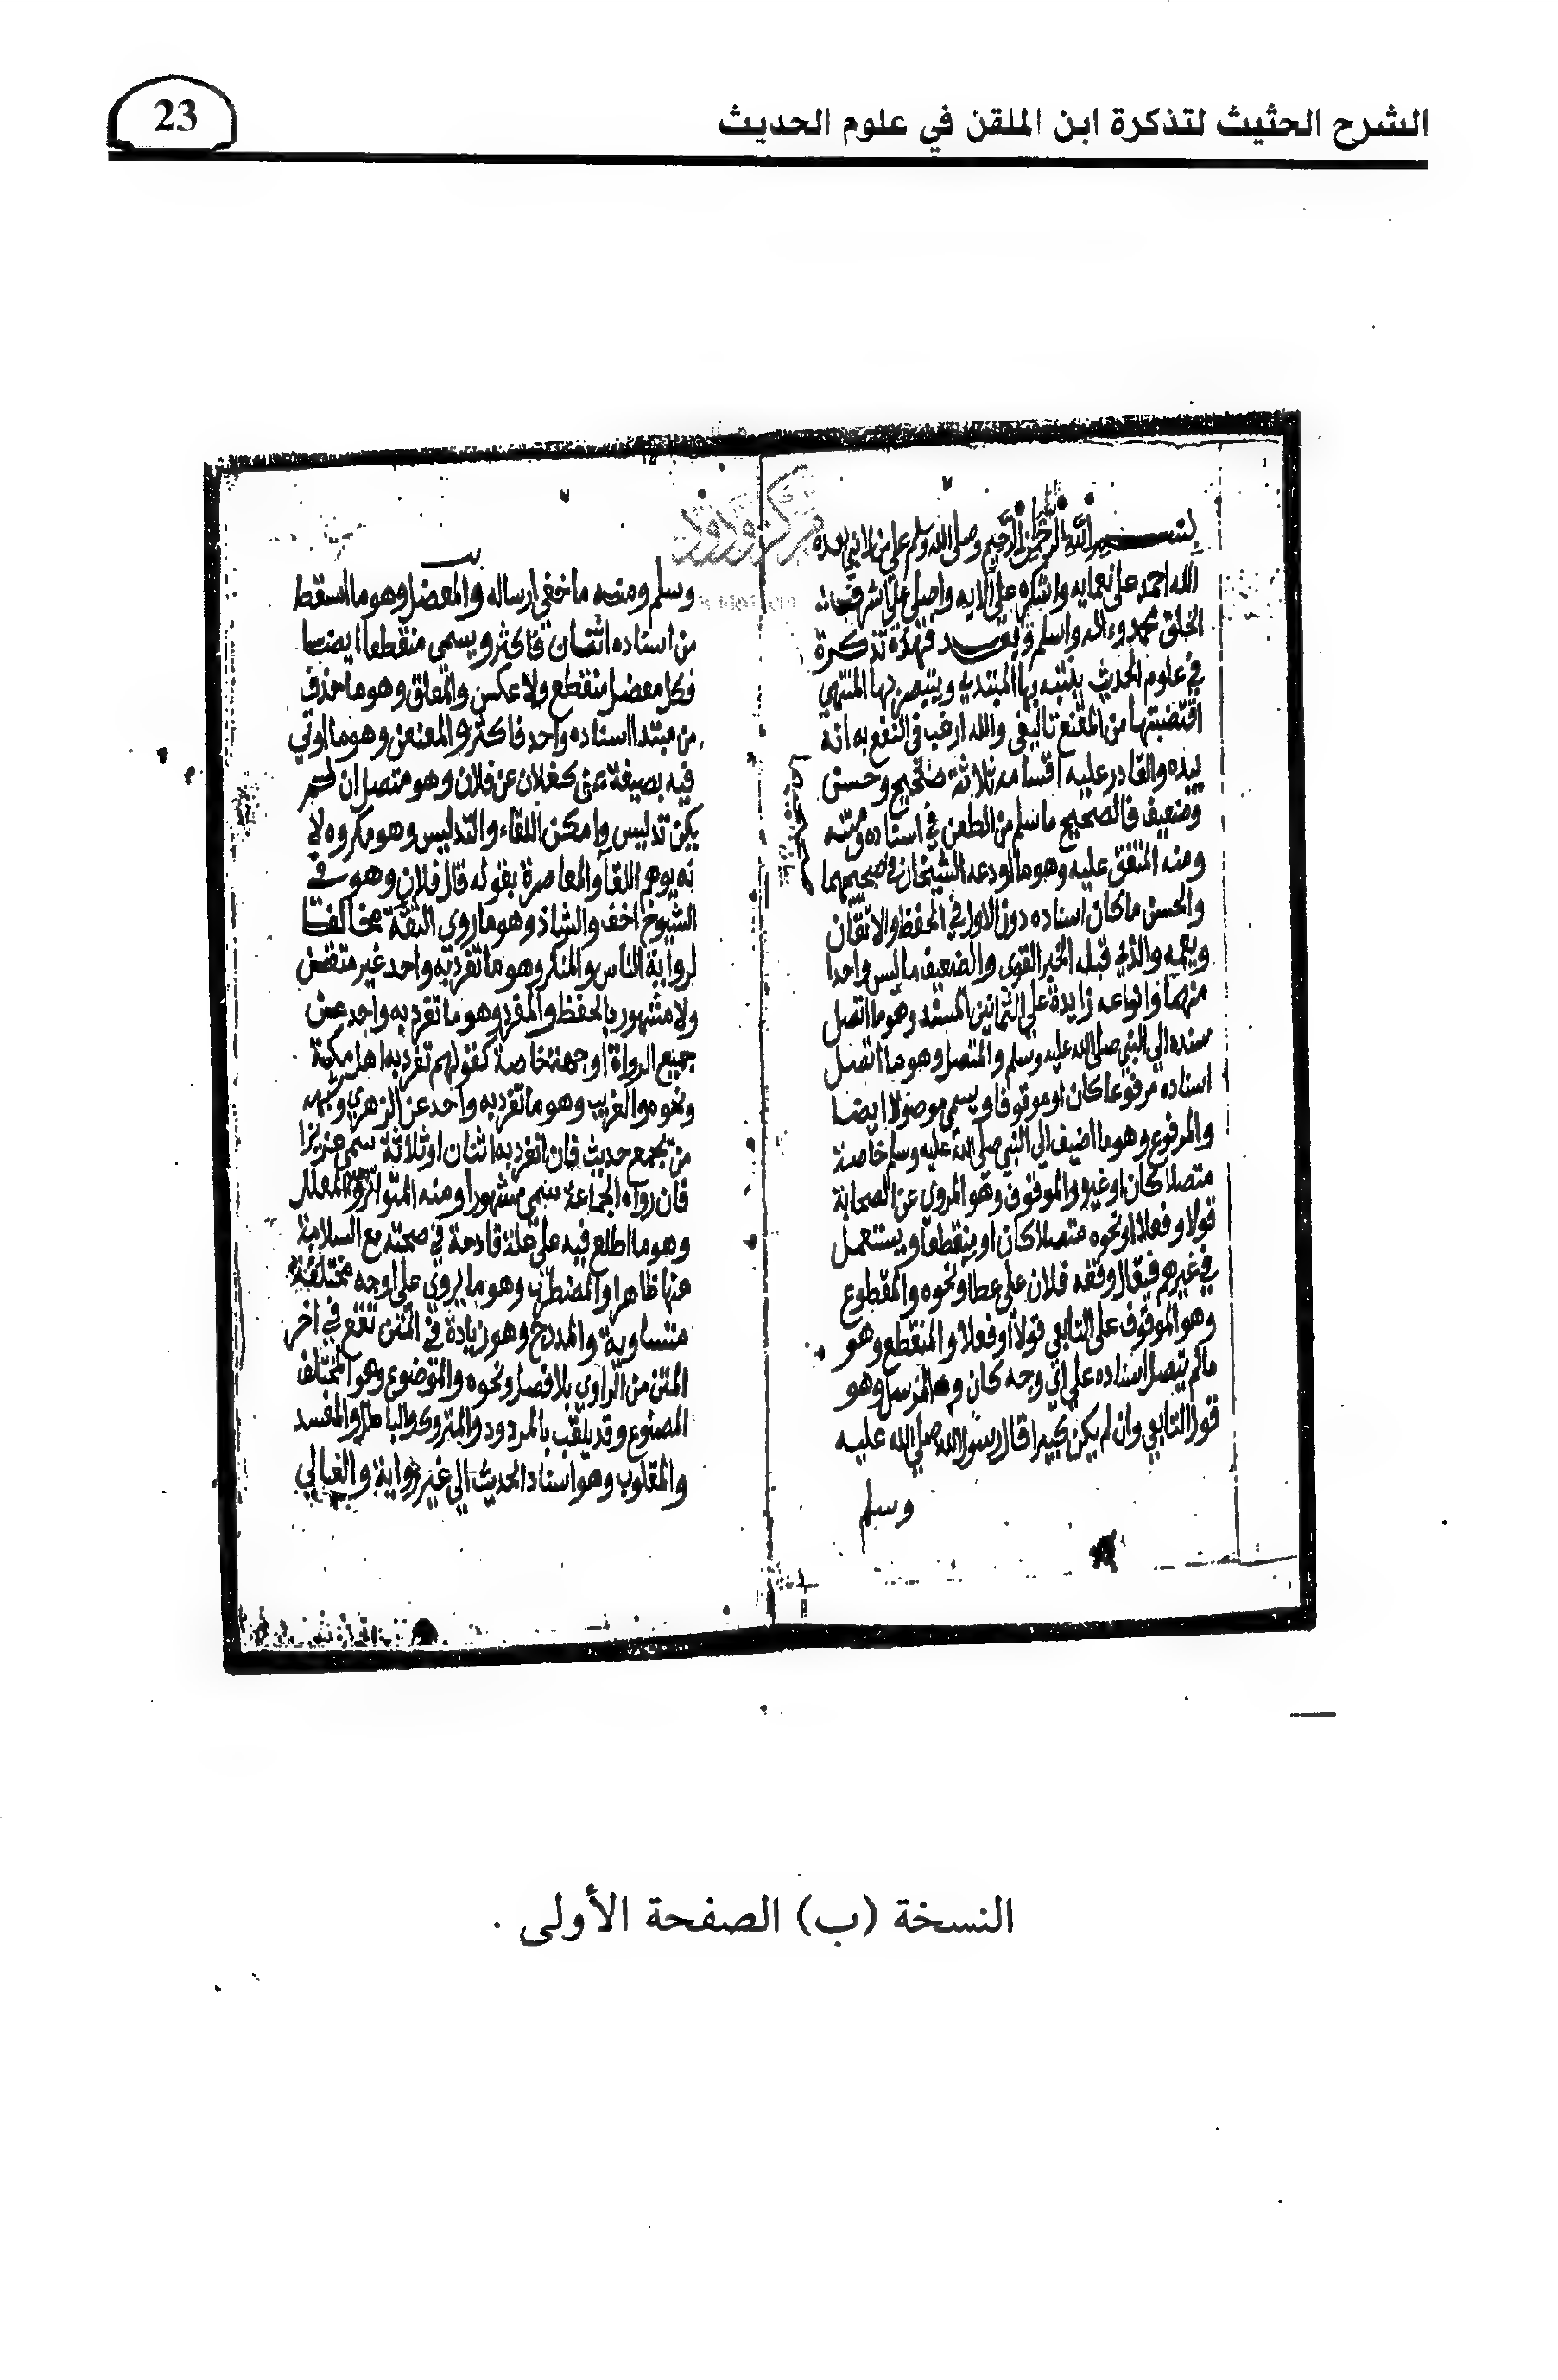 الشرح الحثيث لتذكرة ابن الملقن في علوم الحديث
23
بسم الله الرحمن الرحيم وصلى الله وسلم على من لا نبي بعده
الله احمد على نعمايه واشكره على الايه واصلي على اشرف
الخلق محمد واله واسلم وبعد فهذه تذكرة
في علوم الحديث يتنبه بها المبتدي ويتبصر بها المنتهي
اقتضبتها من المقنع تاليفي والله ارغب في النفع به انه
بيده والقادر عليه اقسامه ثلاثة صحيح وحسن
وضعيف فالصحيح ما سلم من الطعن في اسناده ومتنه
ومنه المتفق عليه وهو ما اودعه الشيخان في صحيحهما
والحسن ما كان اسناده دون الاول في الحفظ والاتقان
ويعمه والذي قبله الخبر القوي والضعيف ما ليس واحدا
منهما وانواعه زايدة على الثمانين المسند وهو ما اتصل
سنده الي النبي صلى الله عليه وسلم والمتصل وهو ما اتصل
اسناده مرفوعا كان او موقوفا ويسمى موصولا ايضا
والمرفوع وهو ما اضيف الي النبي صلى الله عليه وسلم خاصة
متصلا كان او غيره والموقوف وهو المروي عن الصحابة
قولا وفعلا او نحوه متصلا كان او منقطعا ويستعمل
في غيرهم فيقال وقفه فلان على عطا ونحوه والمقطوع
وهو الموقوف على التابعي قولا او فعلا والمنقطع وهو
مالم يتصل اسناده على اي وجه كان و المرسل وهو
قول التابعي وان لم يكن كبيرا قال رسول الله صلى الله عليه
وسلم
وسلم ومنه ما خفي ارساله والمعضل وهو ما اسقط
من اسناده اثنان فاكثر ويسمى منقطعا ايضا
فكل معضل منقطع ولا عكس والمعلق وهو ما حذف
من مبتدا اسناده واحد فاكثر والمعنعن وهو ما اوتي
فيه بصيغة عن كفلان عن فلان وهو متصل ان لم
يكن تدليس وامكن اللقاء والتدليس وهو مكروه لا
نه يوهم اللقا والمعاصرة بقوله قال فلان وهو في
الشيوخ اخف والشاذ وهو ما روي الثقة مخالفا
لرواية الناس والمنكر وهو ما تفرد به واحد غير متقن
ولا مشهور بالحفظ والفرد وهو ما تفرد به واحد عن
جميع الرواة او جهة خاصة كقولهم تفرد به اهل مكة
ونحوه والغريب وهو ما تفرد به واحد عن الزهري وشبهه
من يجمع حديث فان انفرد به اثنان او ثلاثة سمى عزيزا
فان رواه الجماعة سمى مشهورا ومنه المتواتر والمعلل
وهو ما اطلع فيه على علة قادحة في صحته مع السلامة
عنها ظاهرا والمضطرب وهو ما يروي على اوجه مختلفة
متساوية والمدرج وهو زيادة في المتن تقع في اخر
المتن من الراوي بلا فصل ونحوه والموضوع وهو المختلف
المصنوع وقد يلقب بالمردود والمتروك والباطل والمفسد
والمقلوب وهو اسناد الحديث الي غير رواية والعالي
النسخة (ب) الصفحة الأولى .